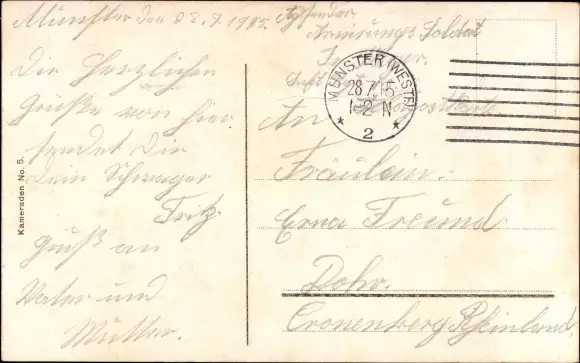 Münster den 28.7.1915
Die Herzlichen
Grüße von hier
sendet Dir
Dein Schwager
Fritz.
Gruß an
Vater und
Mutter.
Kameraden No. 5.
Absender
Armirungs Soldat
MÜNSTER (WESTF.)
28.7.15
1-2 N
* 2 *
An
Fräulein.
Erna Freund
Dohr.
Cronenberg Rheinland